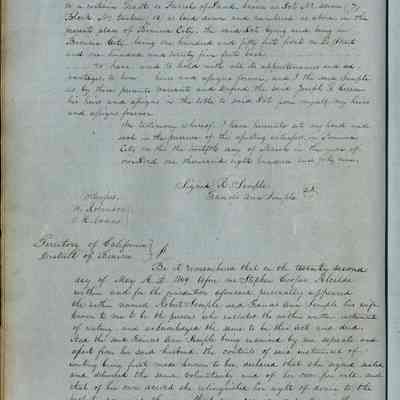 to a certain Tract or Parcel of Land known as Lot No. seven (7)
Block No. twelve (12) as laid down and numbered as above in the
present plan of Benicia City; the said Lot lying and being in
Benicia City, being one hundred and fifty feet front on
and one hundred and twenty five feet back
to have and to hold with all its appurtenances and ad-
vantages, to him heirs and assigns forever, and I the said Semple
as by these presents warrants and defend the said Joseph
his heirs and assigns in the title to said Lot from myself my heirs
and assigns forever
In testimony whereof I have hereunto set my hand and
seal in the presence of the attesting witnesses, in Benicia
City on this the twelfth day of March in the year of
our Lord one thousand eight hundred and forty nine.
Signed R. Semple
Frances Ann Semple
Witness
Robinson
Territory of California
District of Benicia
Be it remembered that on the twenty second
day of May A.D. 1849 before me Stephen Cooper Alcalde
within and for the jurisdiction aforesaid personally appeared
the within named Robert Semple and Frances Ann Semple his wife
known to me to be the persons who executed the within written instrument
of writing, and acknowledged the same to be their act and deed.
And the said Frances Ann Semple being examined by me seperate and
apart from her said husband, the contents of said instrument of
writing being first made known to her, declared that she signed sealed
and delivered the same, voluntarily and of her own free will and
that of her own accord she relinquished her right of dower to the